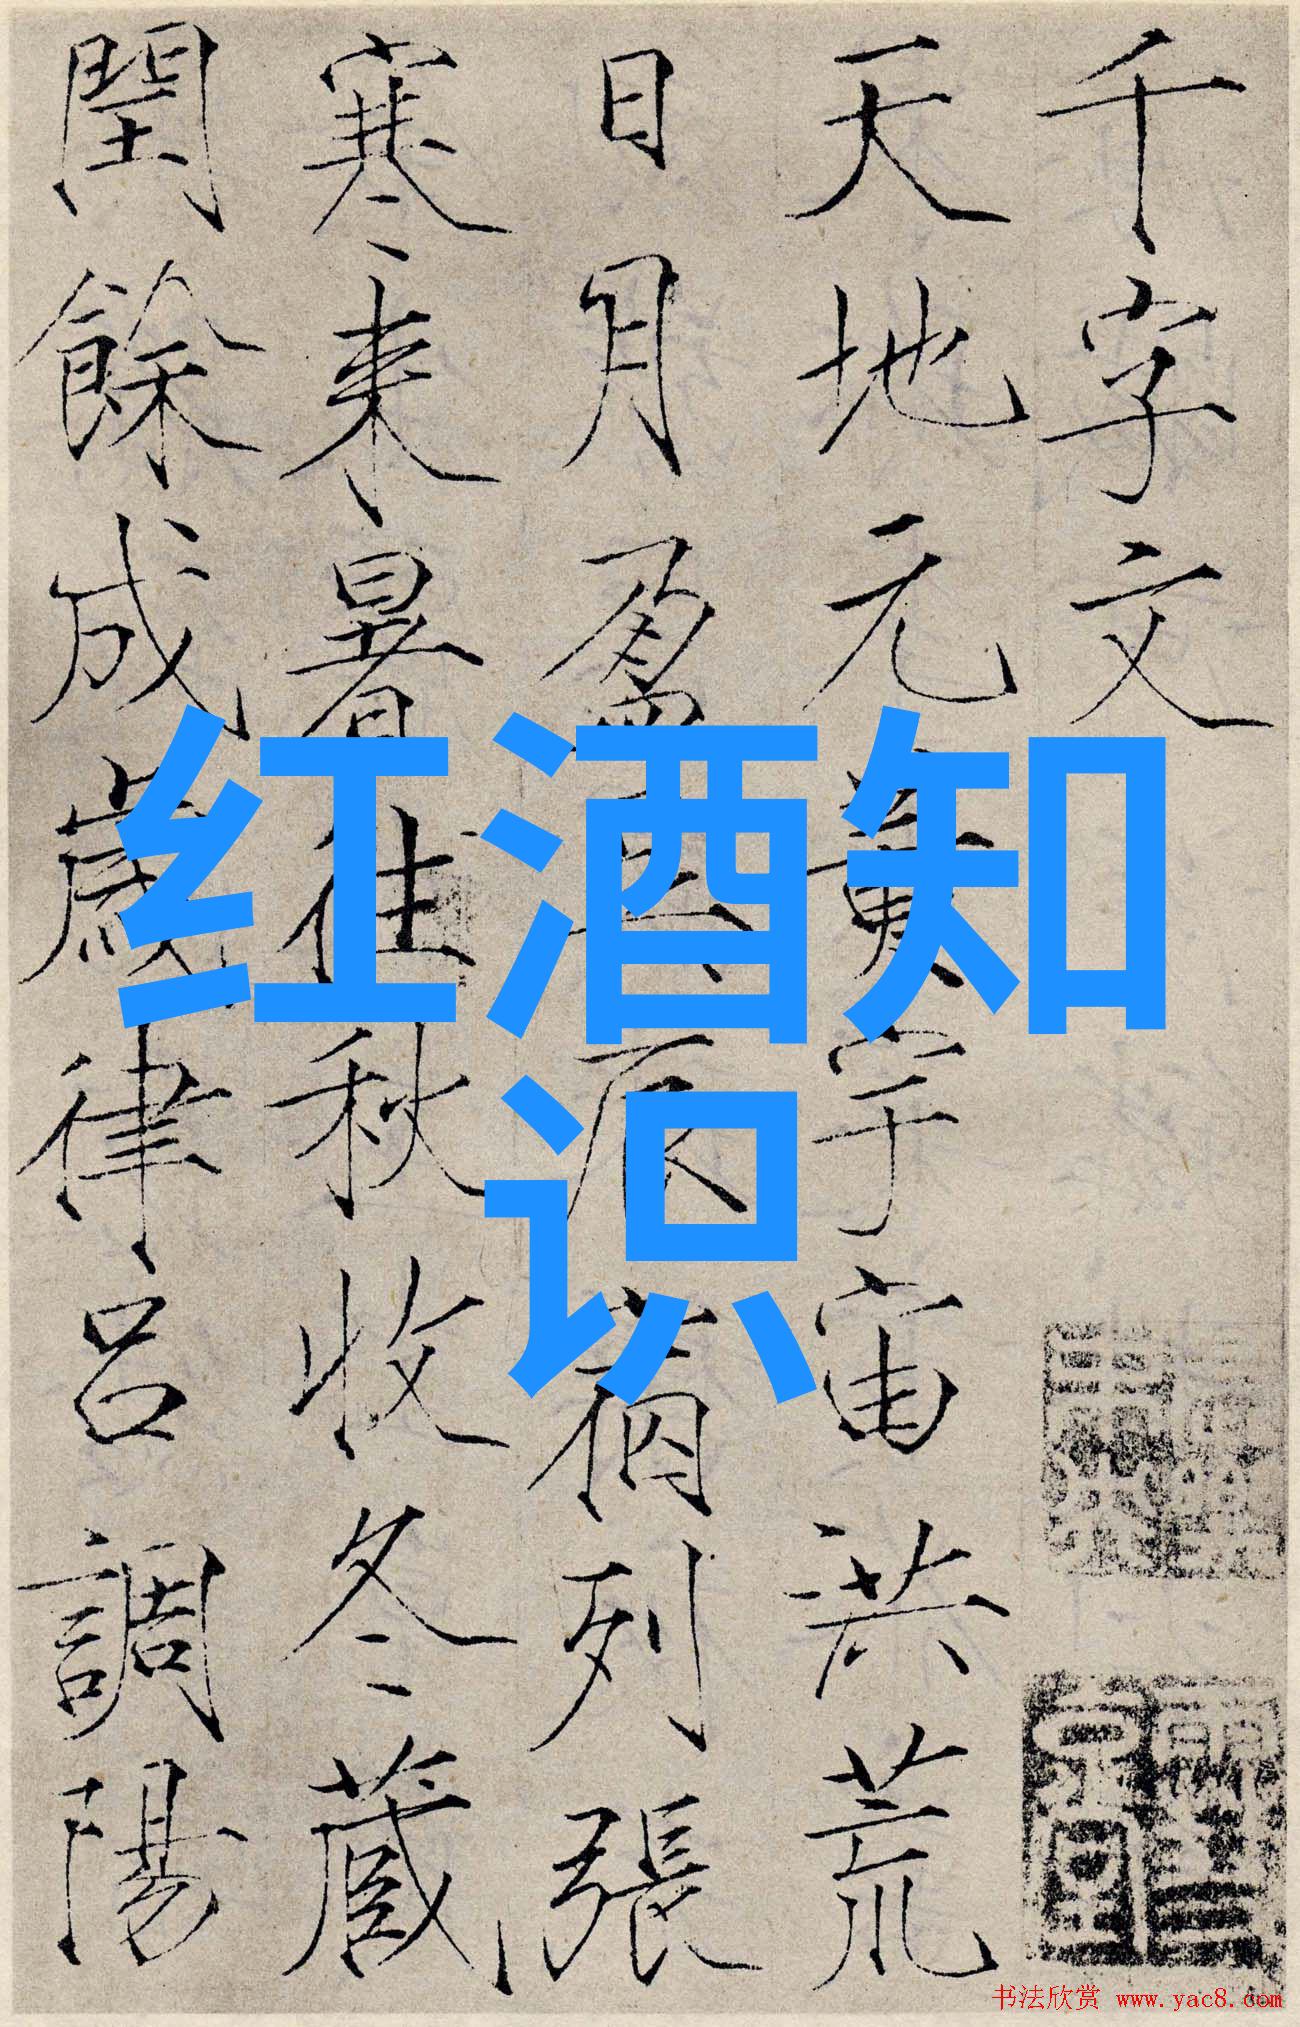 千字文
天地元黄宇宙洪荒
日月盈昃辰宿列張
寒来暑往秋收冬蔵
閏餘成歲律吕調陽
红酒知
识
书法欣赏 www.yac8.com